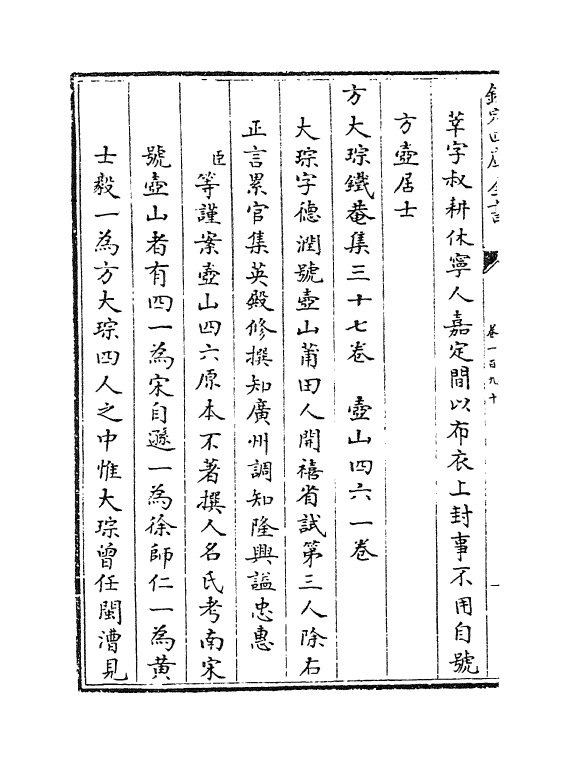 欽定四庫全書
卷一百九十
莘字叔耕休寧人嘉定間以布衣上封事不用自號
方壺居士
方大琮鐵菴集三十七卷　壺山四六一卷
大琮字德潤號壺山莆田人開禧省試第三人除右
正言累官集英殿修撰知廣州調知隆興諡忠惠
臣等謹案壺山四六原本不著撰人名氏考南宋
號壺山者有四一為宋自遜一為徐師仁一為黃
士毅一為方大琮四人之中惟大琮曾任閩漕見